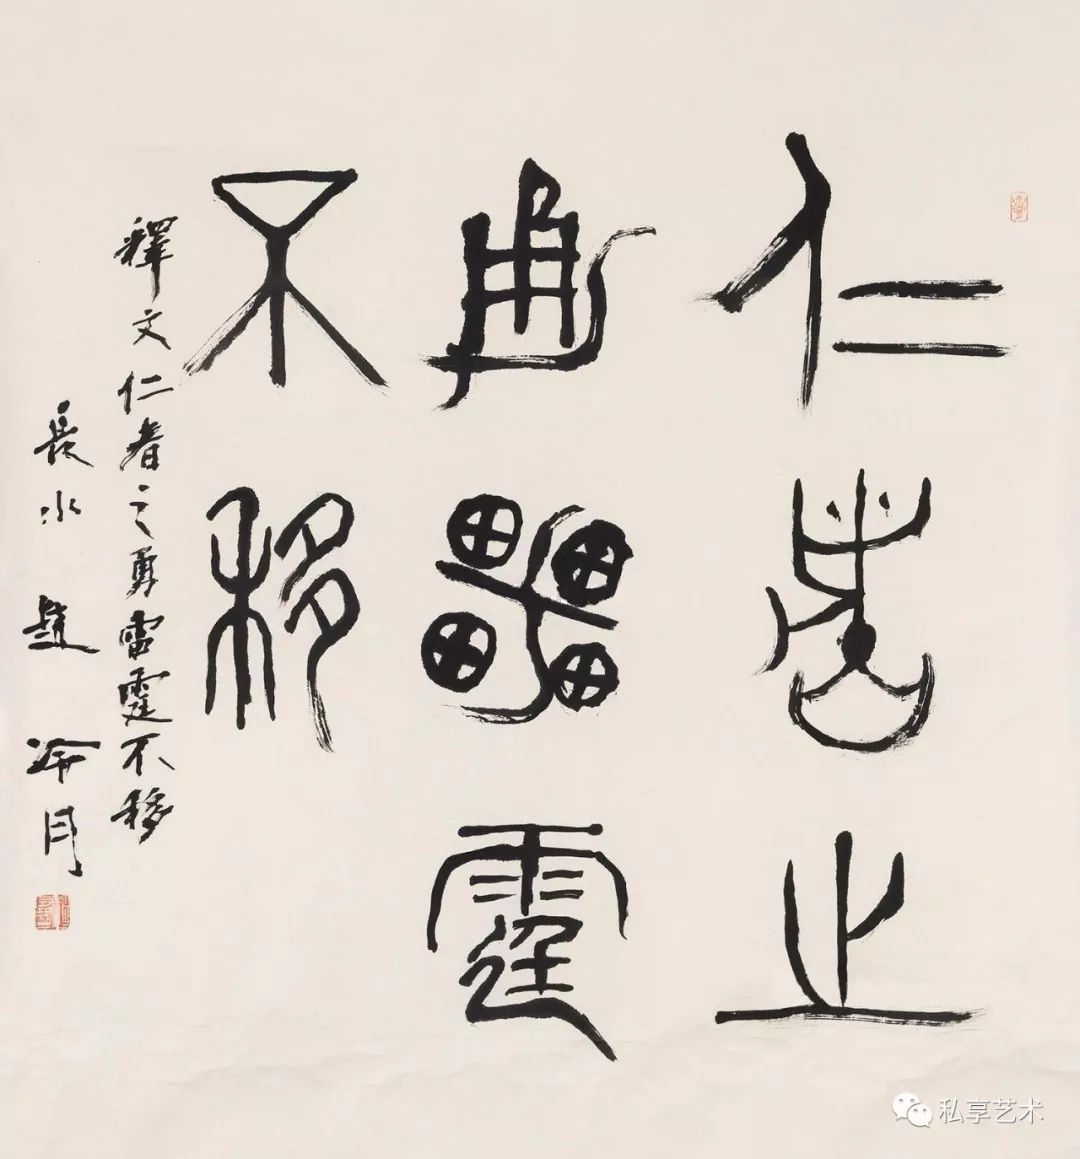 仁者之
勇雷霆
不移
釋文仁者之勇雷霆不移
長水 趙冷月
私享艺术